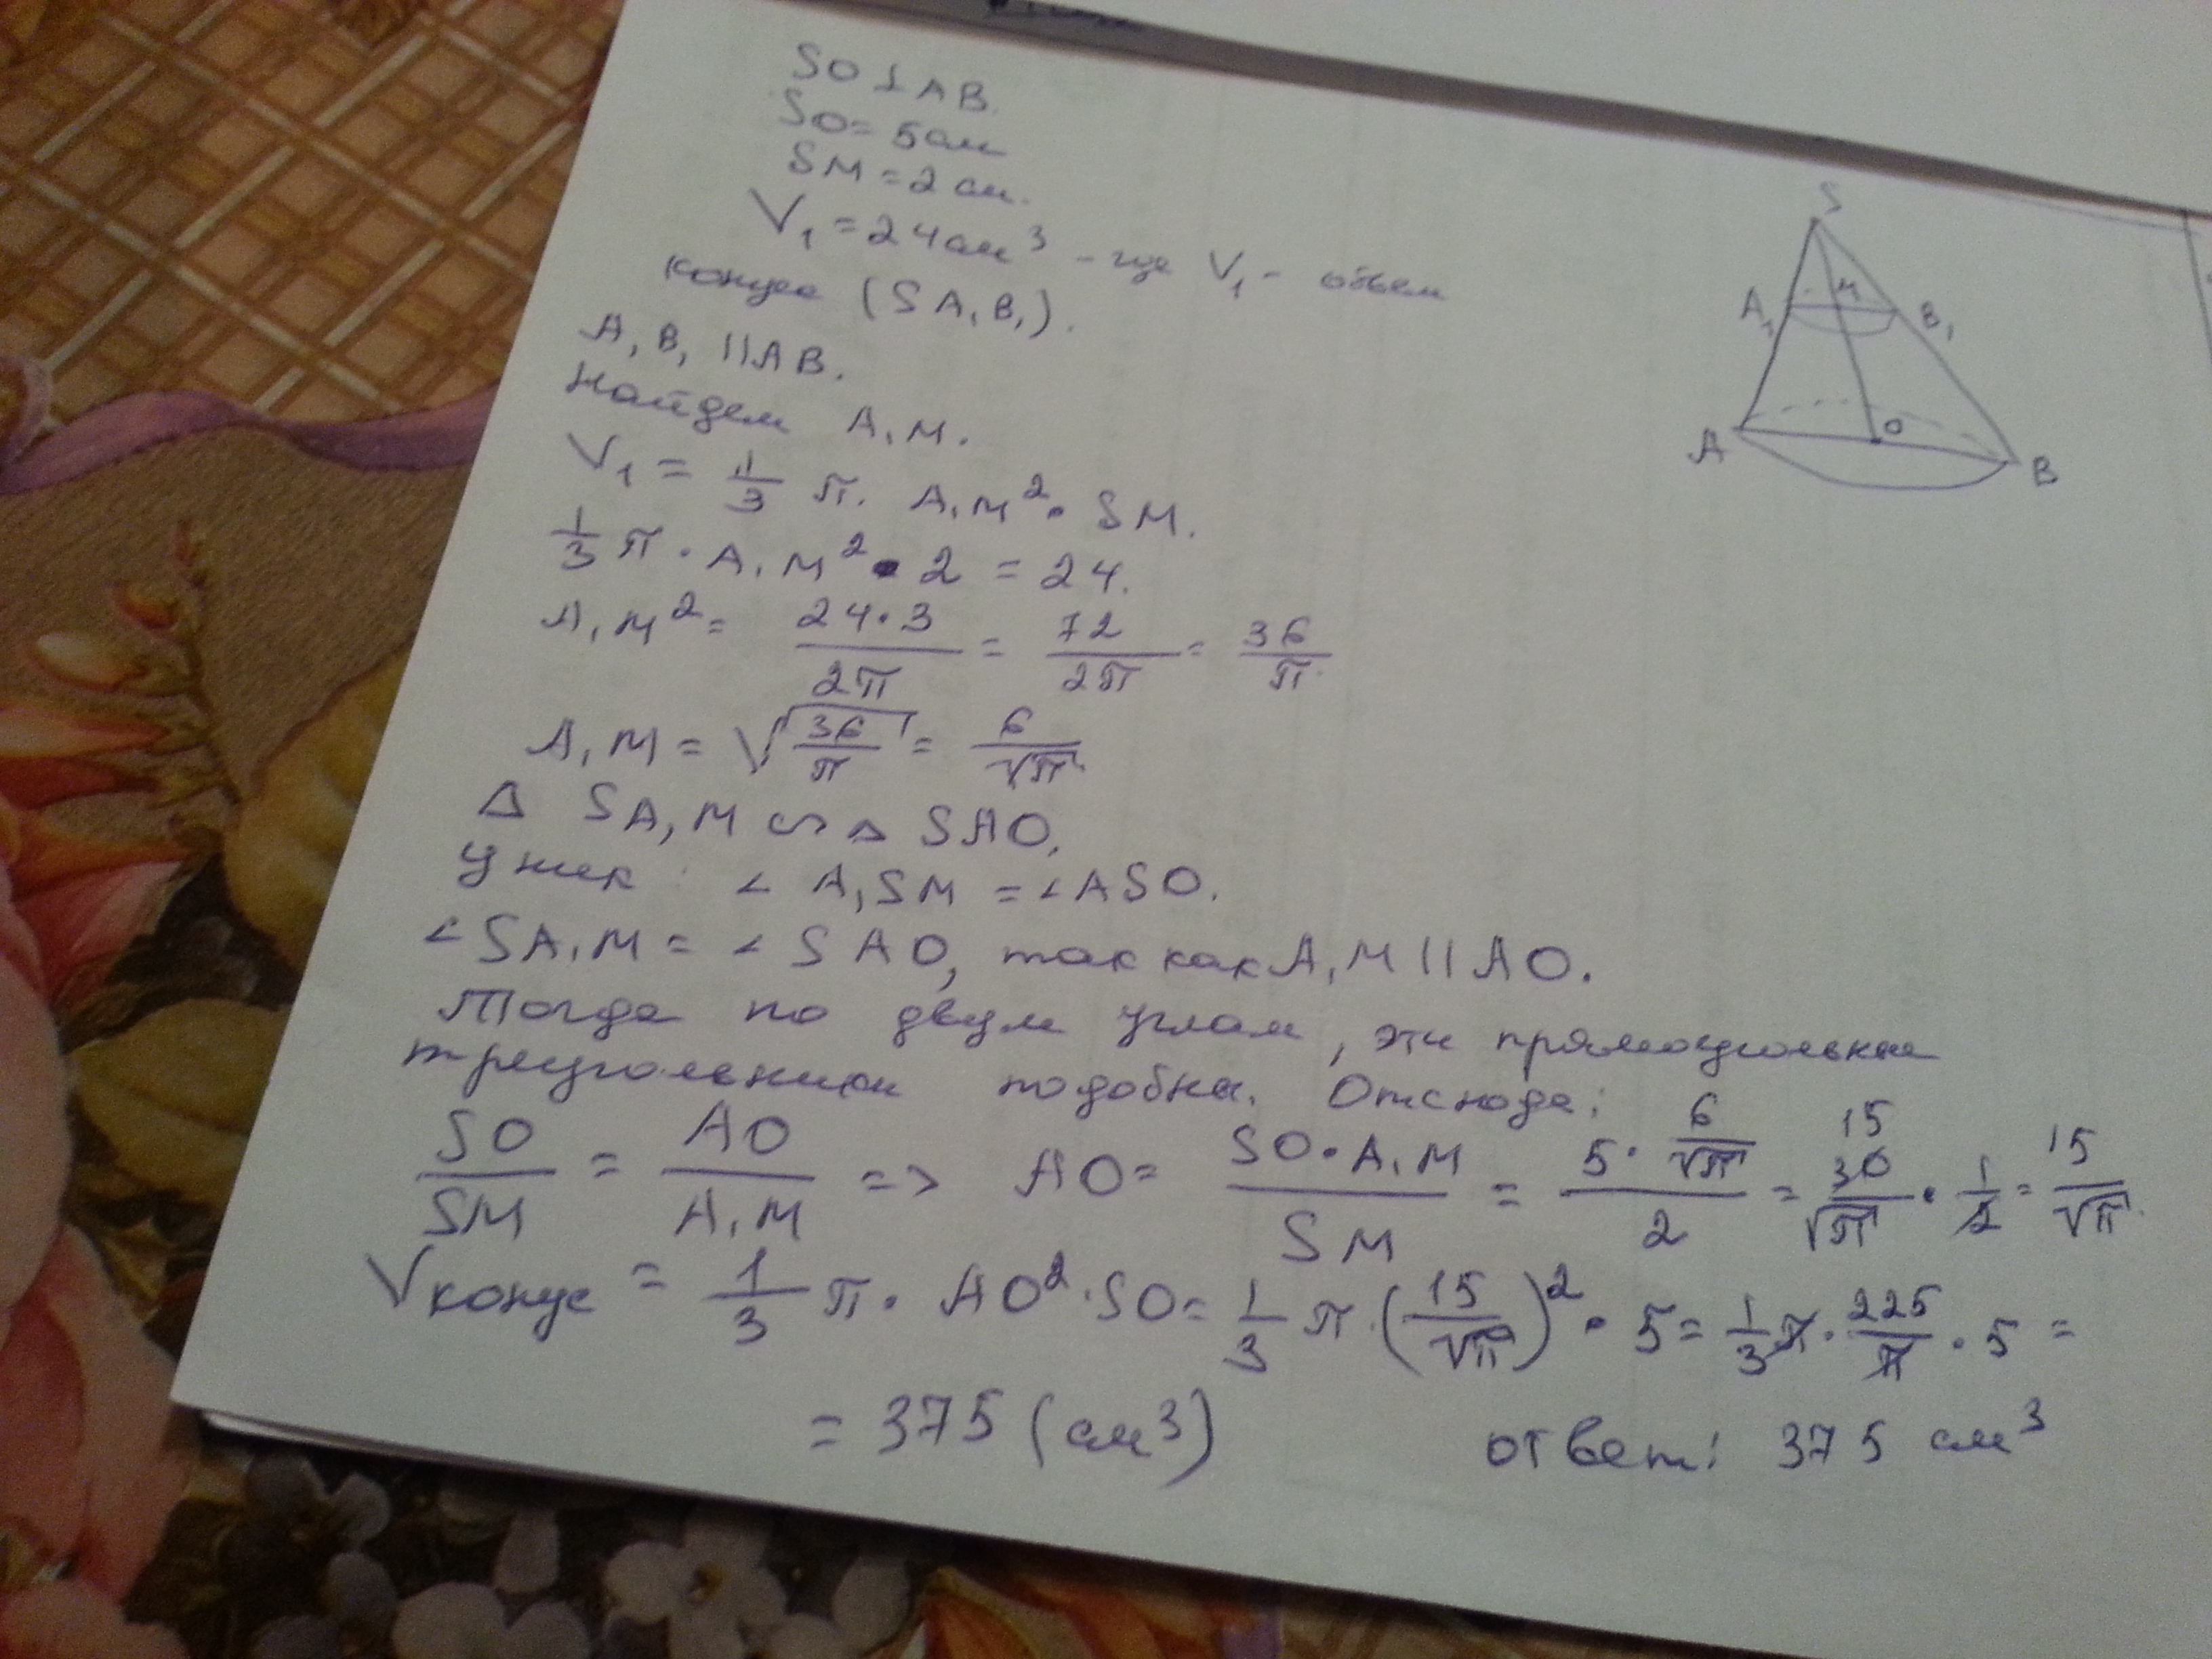 SO ⊥ AB.
SO = 5 см
SM = 2 см.
V₁ = 24 см³ - где V₁ - объем
конуса (SA₁B₁).
A₁B₁ || AB.
Найдем A₁M.
V₁ = 1/3 π · A₁M² · SM.
1/3 π · A₁M² · 2 = 24.
A₁M² = 24·3/2π = 72/2π = 36/π.
A₁M = √(36/π) = 6/√π
Δ SA₁M ∽ Δ SAO,
У них ∠ A₁SM = ∠ASO.
∠SA₁M = ∠SAO, так как A₁M || AO.
Тогда по двум углам, эти прямоугольные
треугольники подобны. Отсюда:
SO/SM = AO/A₁M => AO = SO·A₁M/SM = 5·6/√π/2 = 15 30/√π · 1/2 = 15/√π.
Vконус = 1/3 π · AO² · SO = 1/3 π · (15/√π)² · 5 = 1/3 π · 225/π · 5 =
= 375 (см³)
ответ: 375 см³
S
A₁
M
B₁
A
O
B